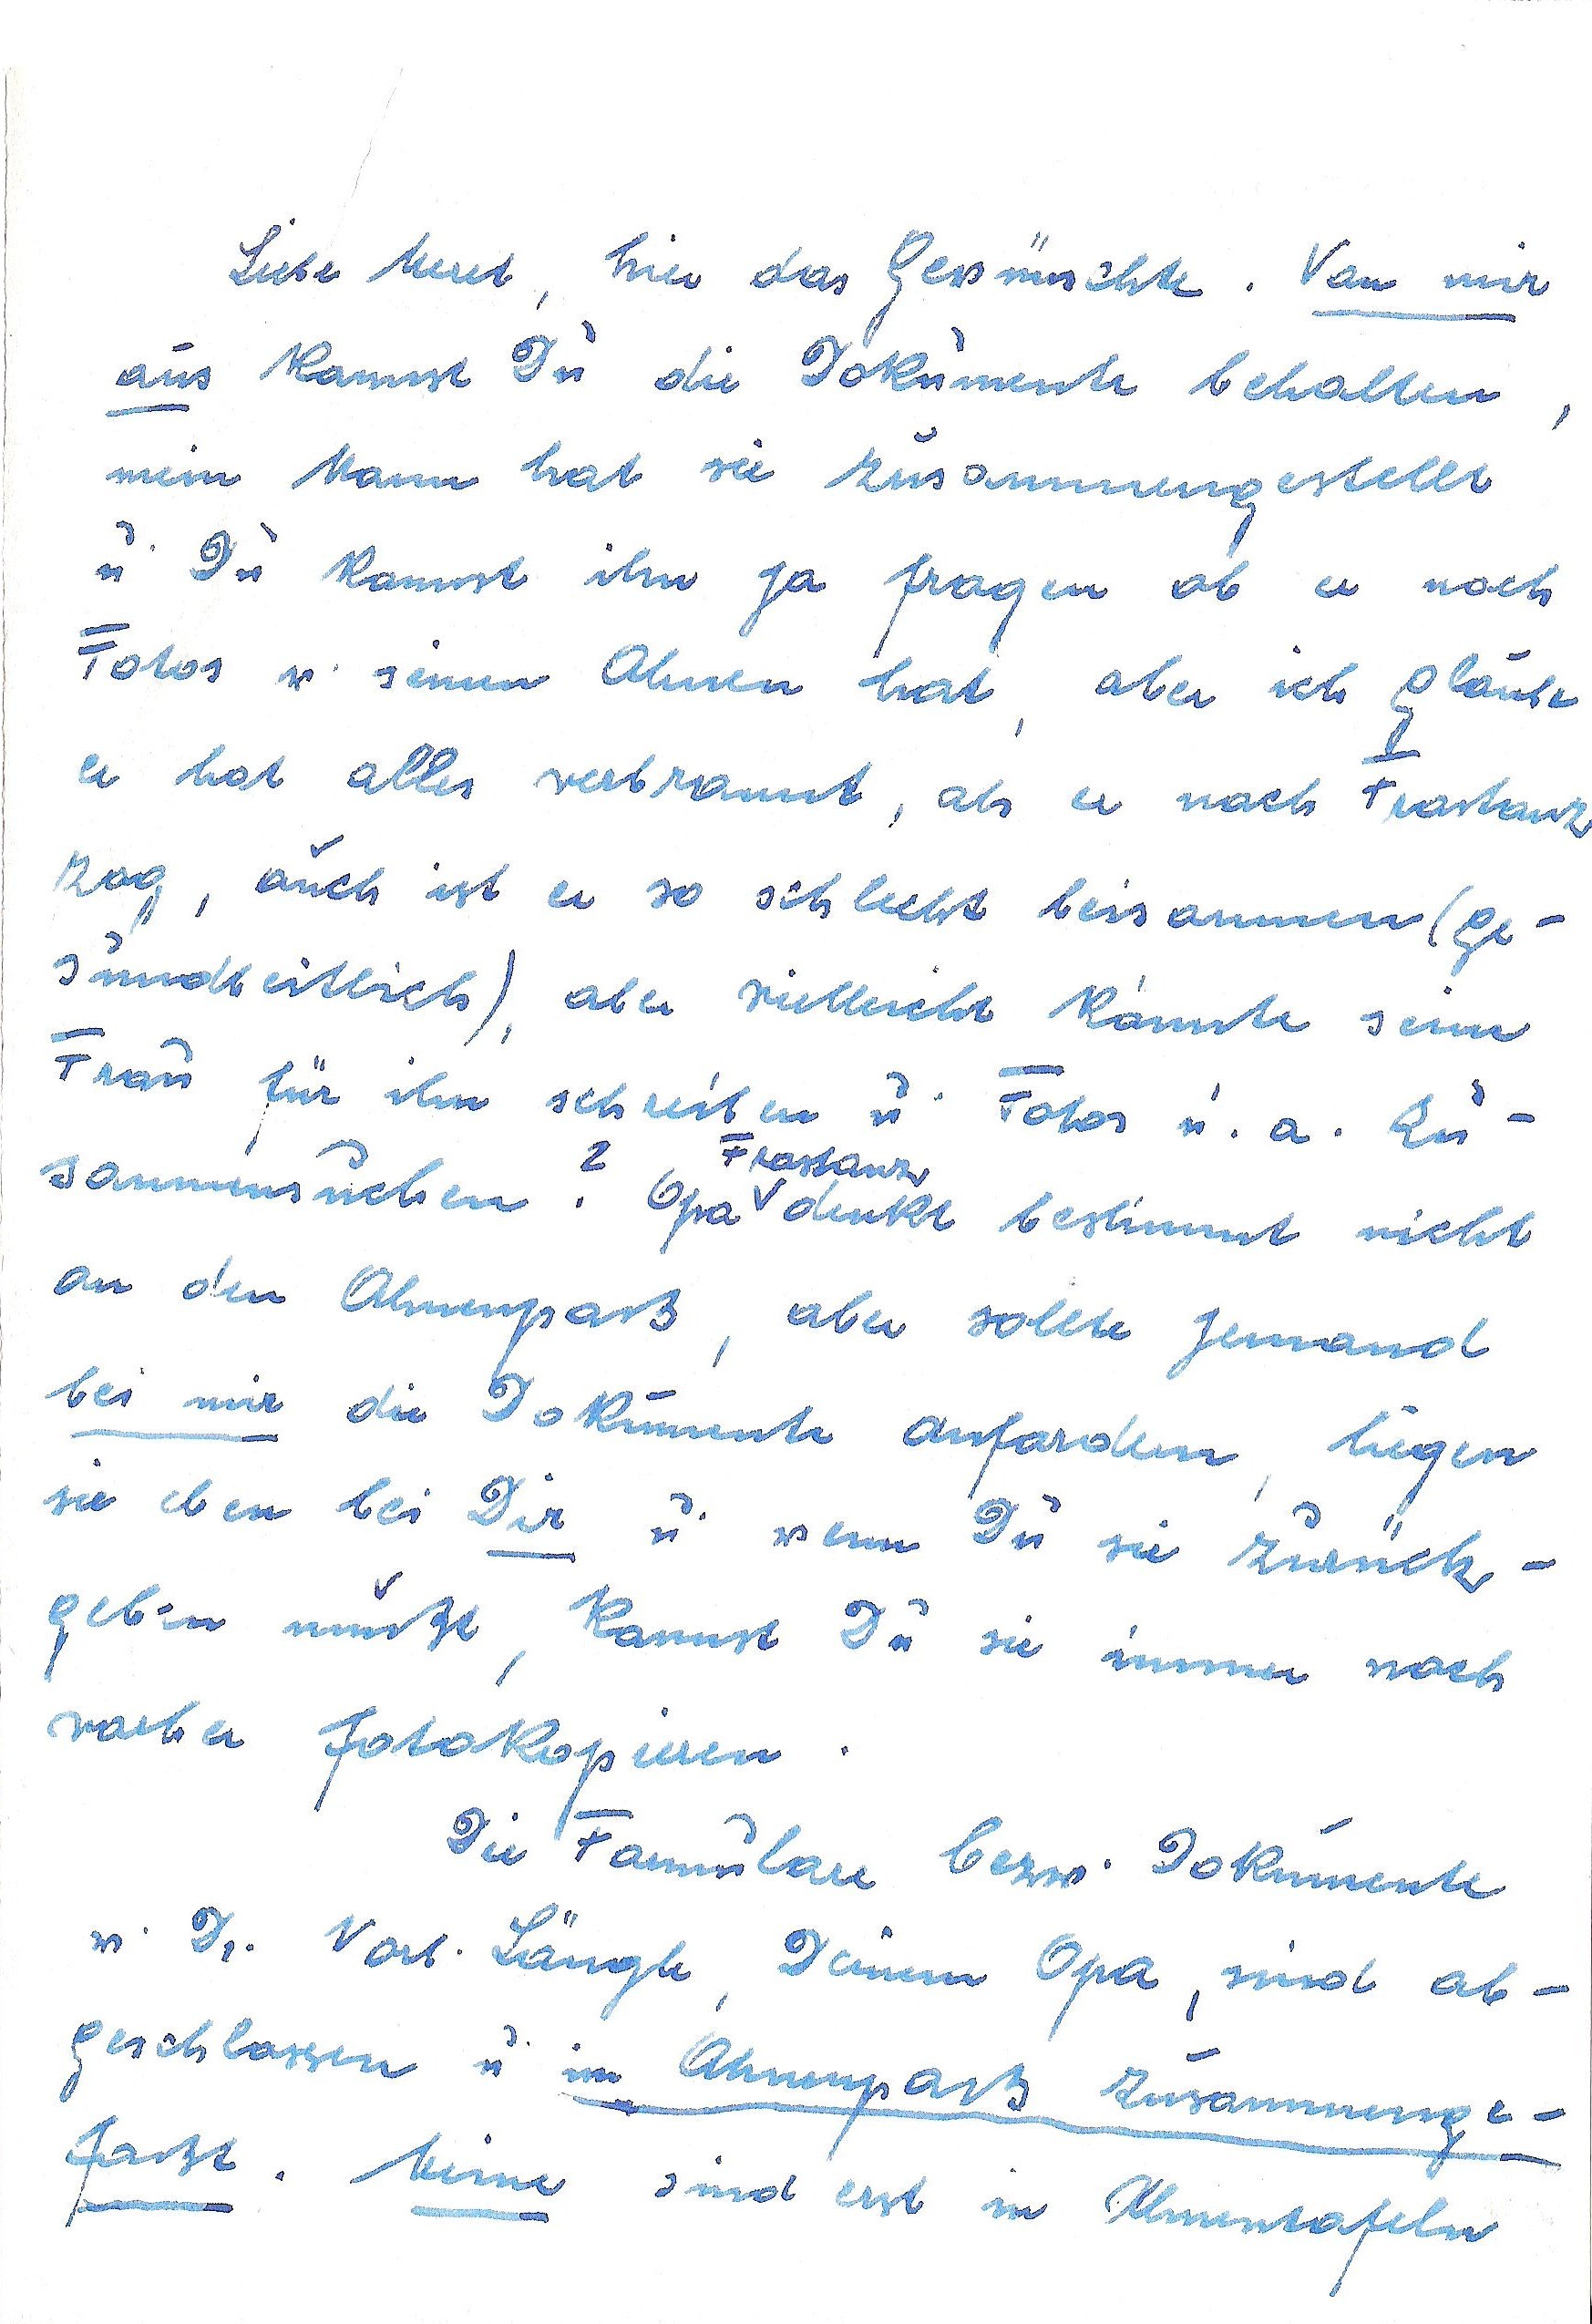 Liebe Meret, hier das Gewünschte. Von mir
aus kannst Du die Dokumente behalten,
mein Mann hat sie zusammengestellt
u. Du kannst ihn ja fragen ob er noch
Fotos v. seinen Ahnen hat, aber ich glaube
er hat alles verbrannt, als er nach Frastanz
zog, auch ist er so schlecht beisammen (ge-
sundheitlich), aber vielleicht könnte seine
Frau für ihn schreiben u. Fotos u. a. zu-
sammensuchen? Opa Frastanz denkt bestimmt nicht
an den Ahnenpaß, aber sollte jemand
bei mir die Dokumente anfordern, liegen
sie eben bei Dir u. wenn Du sie zurück-
geben mußt, kannst Du sie immer noch
vorher fotokopieren.
Die Formulare bezw. Dokumente
v. Dr. Norb. Längle, Deinem Opa, sind ab-
geschlossen u. im Ahnenpaß zusammenge-
faßt. Meine sind erst in Ahnentafeln